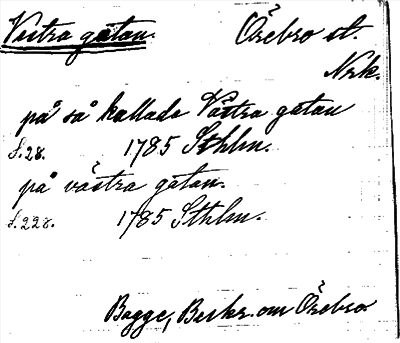 Västra gatan. Örebro st.
Nrk.
på så kallade Västra gatan
s. 28. 1785 Sthlm.
på västra gatan.
s. 228. 1785 Sthlm.
Bagge, Beskr. om Örebro